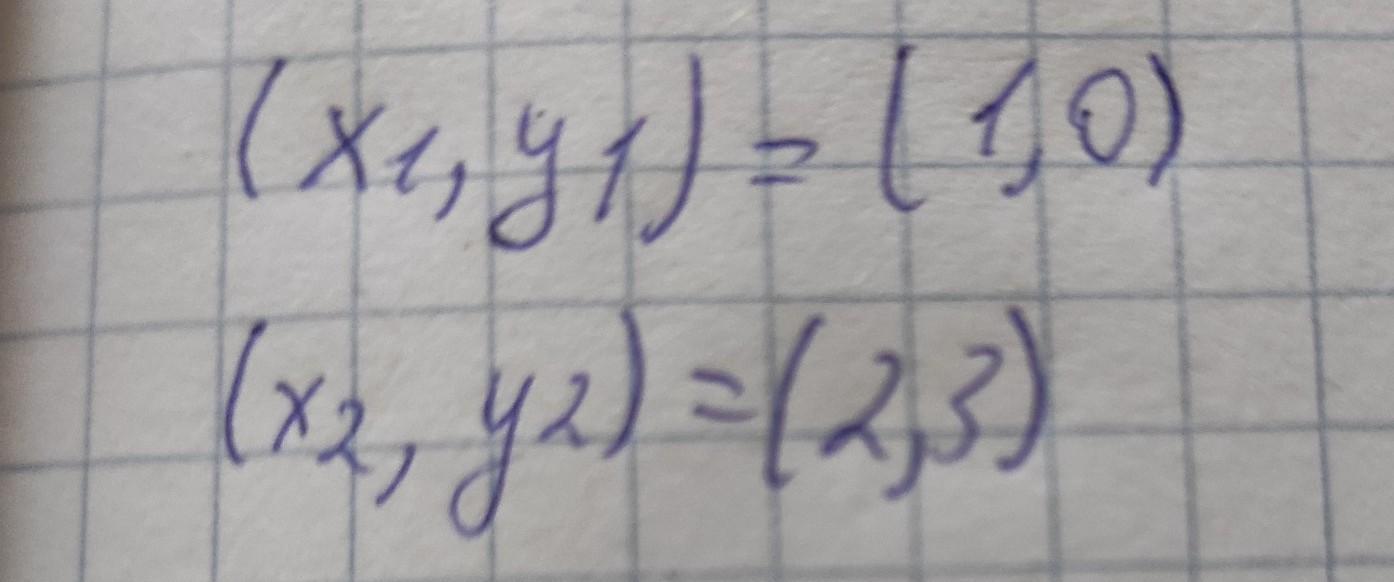 (x1, y1) = (1,0)
(x2, y2) = (2,3)